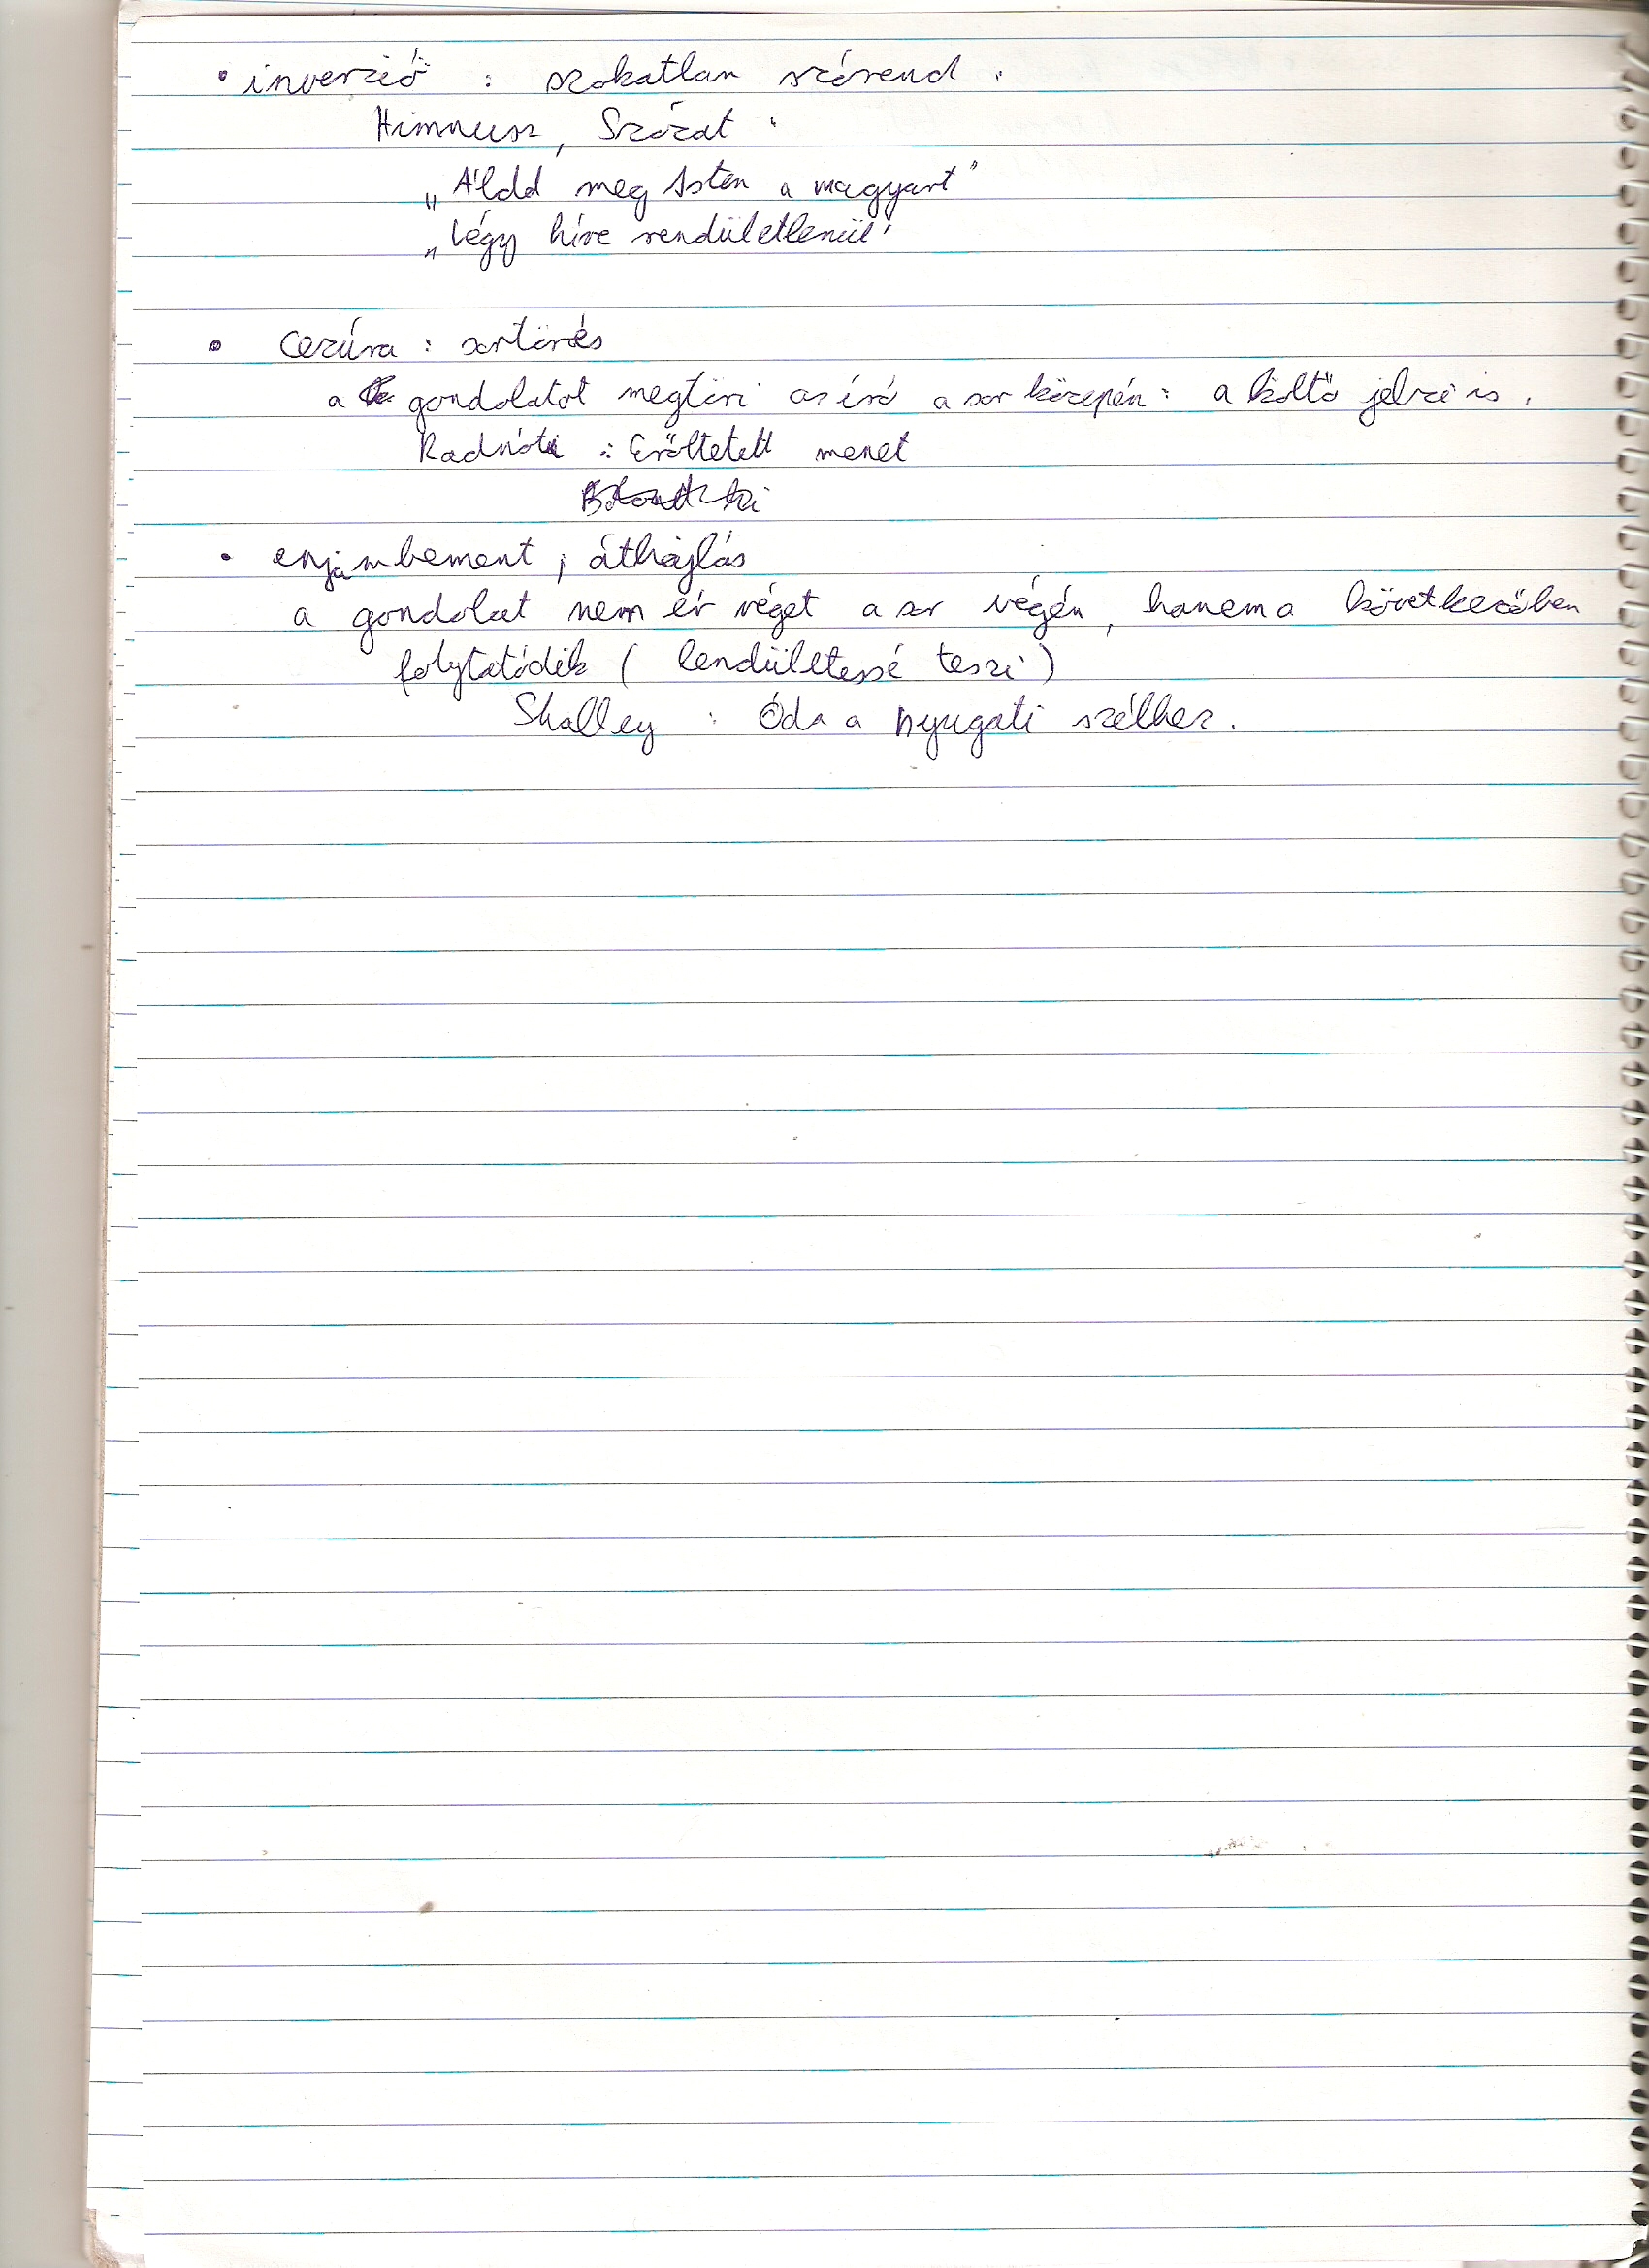 • inverzió : szokatlan szórend.
Himnusz, Szózat :
„Áldd meg Isten a magyart”
„Légy híve rendületlenül”
• Cezúra : sortörés
a gondolatot megtöri az író a sor közepén : a költő jelzi is.
Radnóti : Erőltetett menet
• enjambement ; áthajlás
a gondolat nem ér véget a sor végén, hanem a következőben
folytatódik ( lendületessé teszi )
Shalley : Óda a nyugati szélhez.